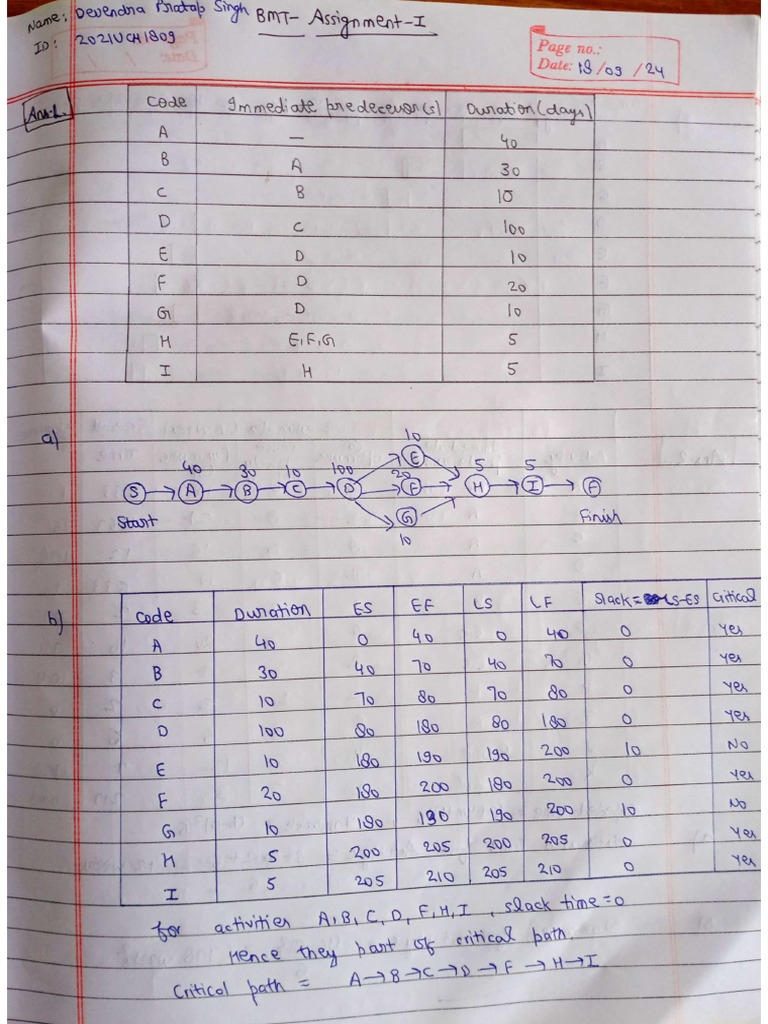 Name: Devendra Pratap Singh BMT- Assignment-I
ID: 2021UCH1809
Page no.:
Date: 18/09/24
Ans-1.
Code Immediate predecessor(s) Duration(days)
A — 40
B A 30
C B 10
D C 100
E D 10
F D 20
G D 10
H E,F,G 5
I H 5
a)
10
E
40 30 10 100 20 5 5
S A B C D F H I F
Start G Finish
10
b)
Code Duration ES EF LS LF Slack=LS-ES Critical
A 40 0 40 0 40 0 Yes
B 30 40 70 40 70 0 Yes
C 10 70 80 70 80 0 Yes
D 100 80 180 80 180 0 Yes
E 10 180 190 190 200 10 No
F 20 180 200 180 200 0 Yes
G 10 180 190 190 200 10 No
H 5 200 205 200 205 0 Yes
I 5 205 210 205 210 0 Yes
for activities A,B,C,D,F,H,I , slack time=0
Hence they part of critical path.
Critical path = A→B→C→D→F→H→I